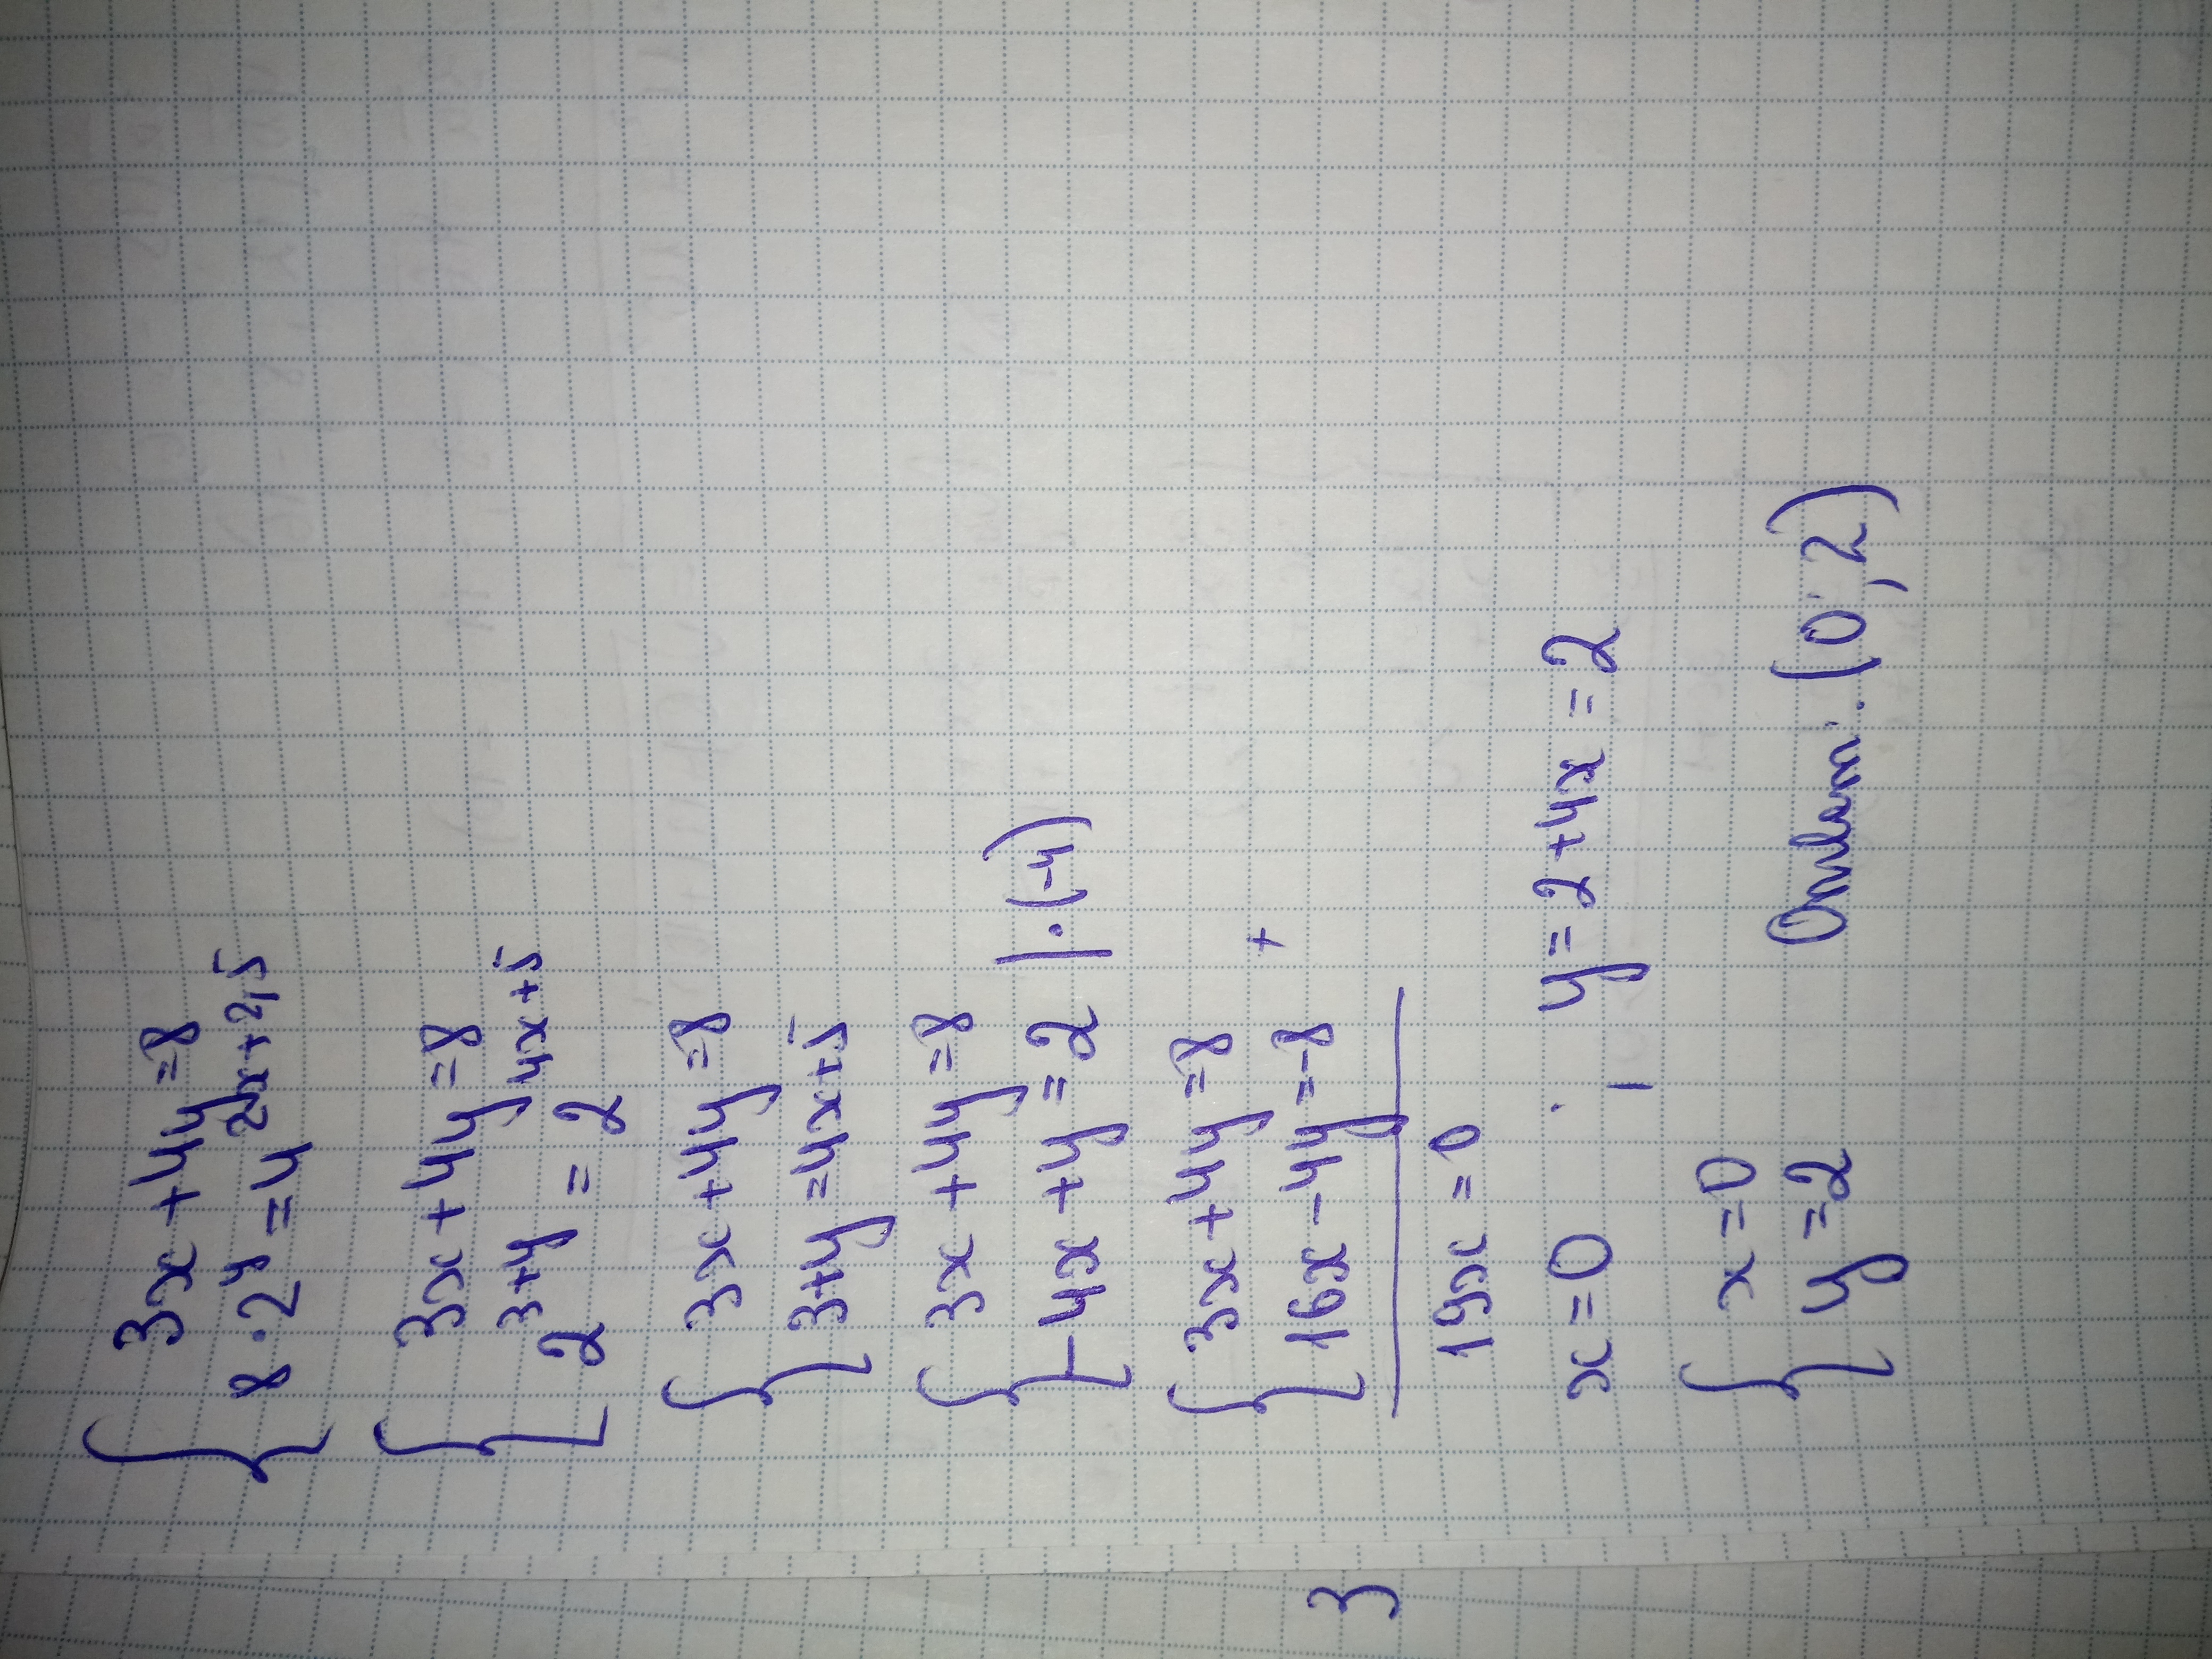 { 3x + 4y = 8
8 · 2^y = 4^(2x+2,5)
{ 3x + 4y = 8
2^(3+y) = 2^(4x+5)
{ 3x + 4y = 8
3+y = 4x+5
{ 3x + 4y = 8
-4x + y = 2 | · (-4)
{ 3x + 4y = 8
16x - 4y = -8 +
19x = 0
x = 0 ; y = 2 + 4x = 2
{ x = 0
y = 2 Ответ: (0; 2)
3